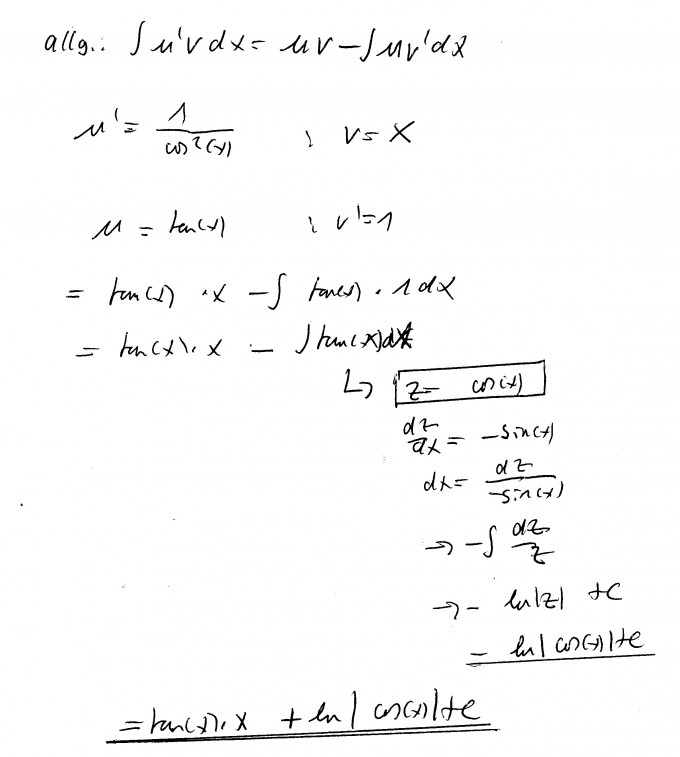 allg.: ∫ u'v dx = uv - ∫ uv' dx
u' = 1/cos²(x) ; v = x
u = tan(x) ; v' = 1
= tan(x) · x - ∫ tan(x) · 1 dx
= tan(x) · x - ∫ tan(x) dx
↳ z = cos(x)
dz/dx = -sin(x)
dx = dz/-sin(x)
→ -∫ dz/z
→ - ln|z| + c
- ln|cos(x)| + c
= tan(x) · x + ln|cos(x)| + c